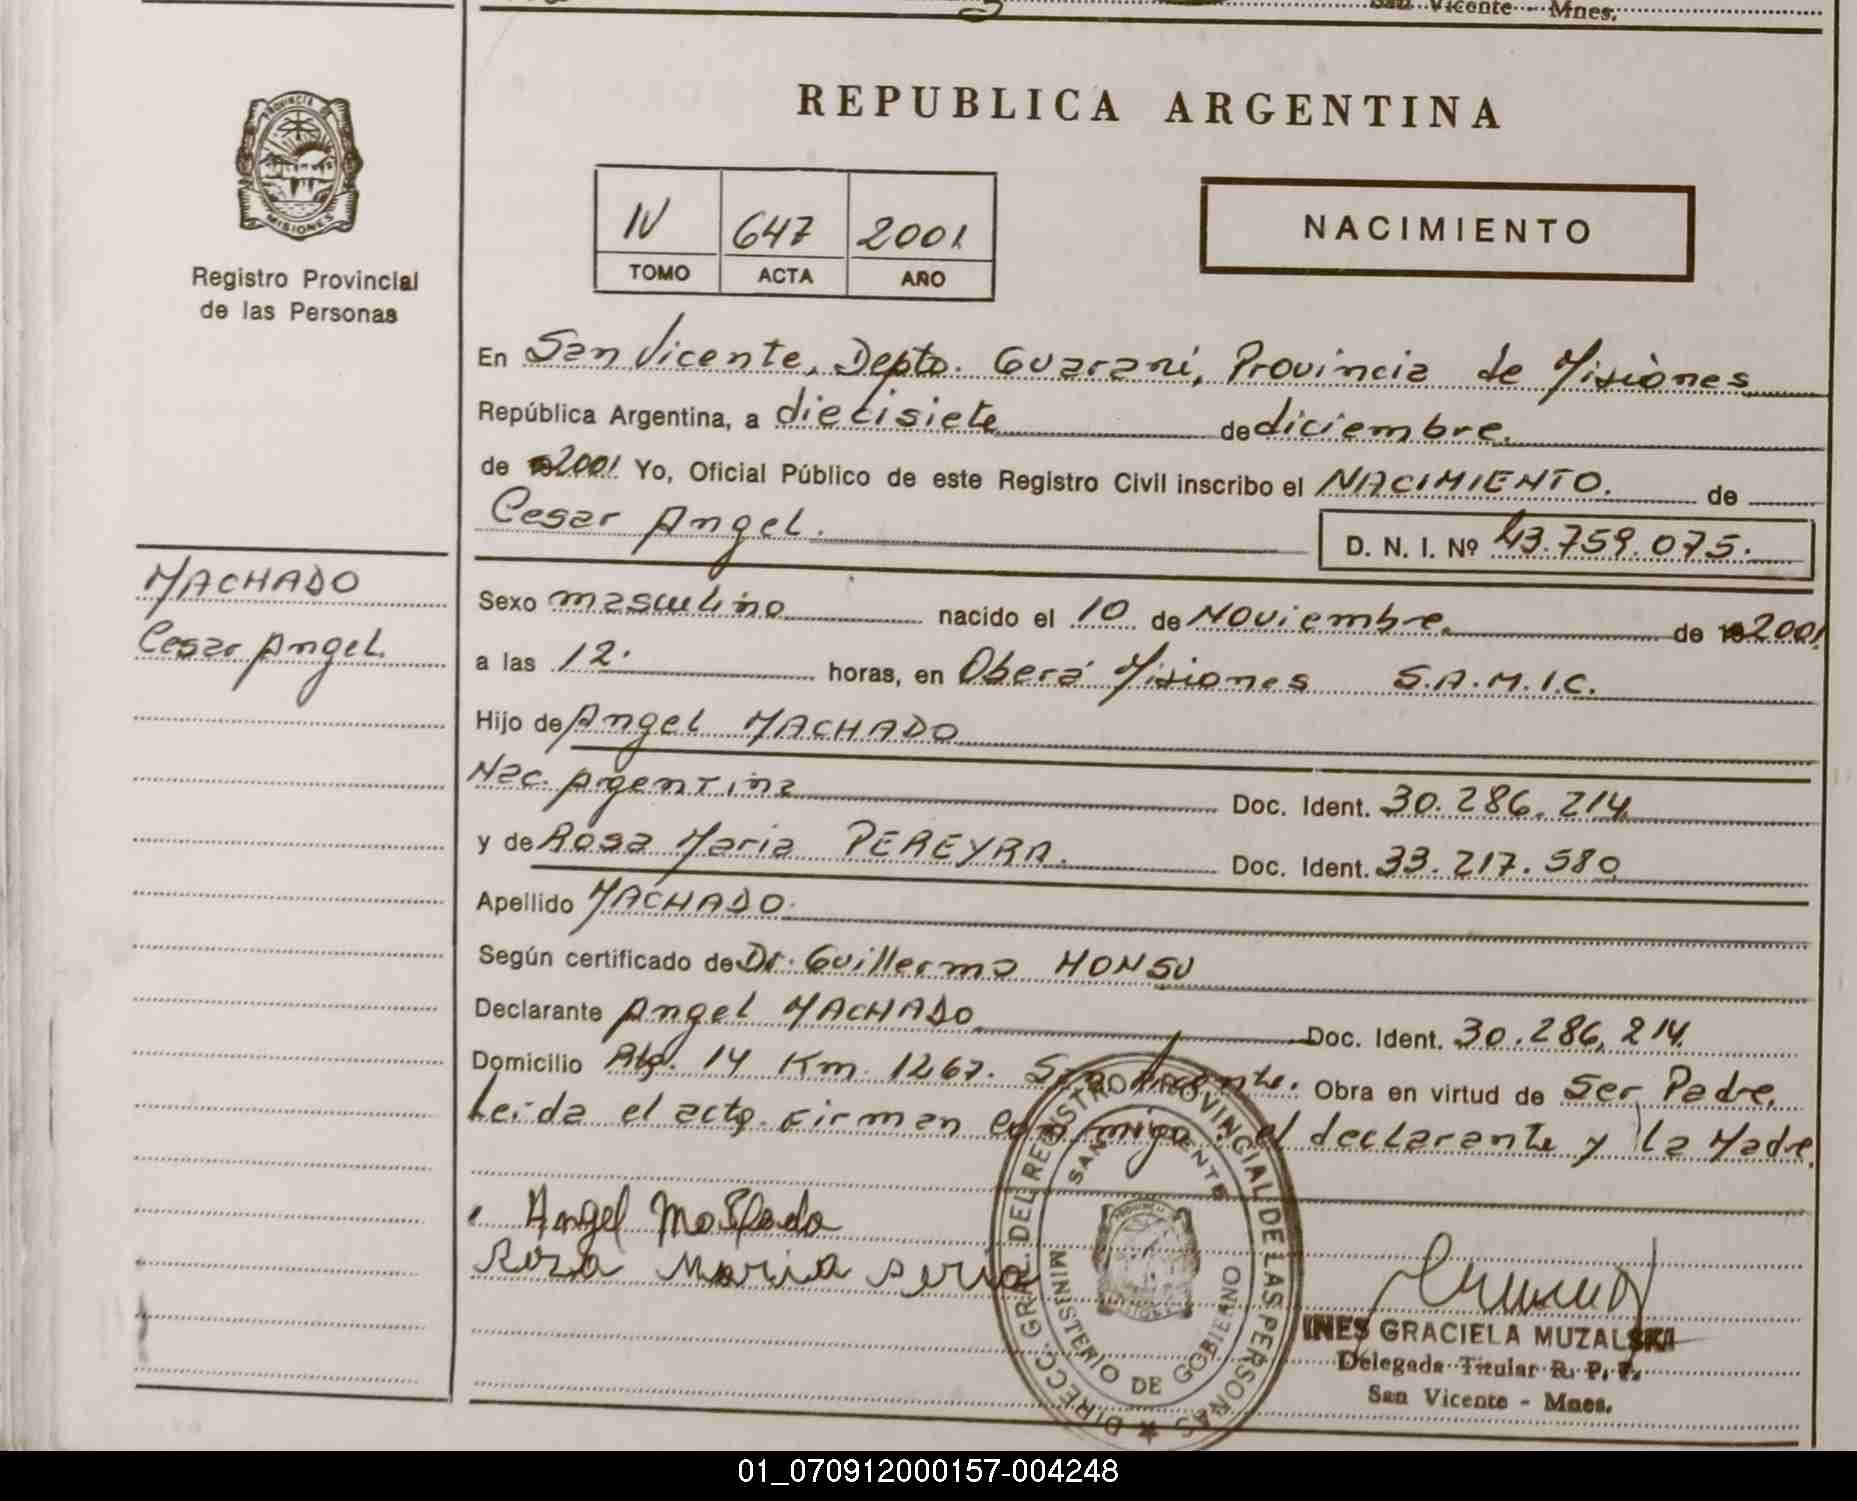 San Vicente - Mnes.
REPUBLICA ARGENTINA
PROVINCIA DE
MISIONES
Registro Provincial
de las Personas
IV 647 2001
TOMO ACTA AÑO
NACIMIENTO
En San Vicente, Depto. Guaraní, Provincia de Misiones
República Argentina, a diecisiete de diciembre.
de 2001 Yo, Oficial Público de este Registro Civil inscribo el NACIMIENTO. de
Cesar Angel.
D. N. I. Nº 43.759.075.
MACHADO
Cesar Angel.
Sexo masculino nacido el 10 de Noviembre. de 2001
a las 12. horas, en Oberá Misiones S.A.M.I.C.
Hijo de Angel MACHADO
Nac. Argentina Doc. Ident. 30.286.214
y de Rosa Maria PEREYRA. Doc. Ident. 33.217.580
Apellido MACHADO.
Según certificado de Dr. Guillermo
Declarante Angel MACHADO Doc. Ident. 30.286.214
Domicilio 14 Km. 1267. San Vicente. Obra en virtud de Ser Padre.
Leída el acta firman conmigo: el declarante y la Madre.
Angel
Rosa Maria
DIRECC. GRAL. DEL REGISTRO PROVINCIAL DE LAS PERSONAS
SAN VICENTE
MINISTERIO DE GOBIERNO
INES GRACIELA MUZALSKI
Delegada Titular R. P. P.
San Vicente - Mnes.
01_070912000157-004248